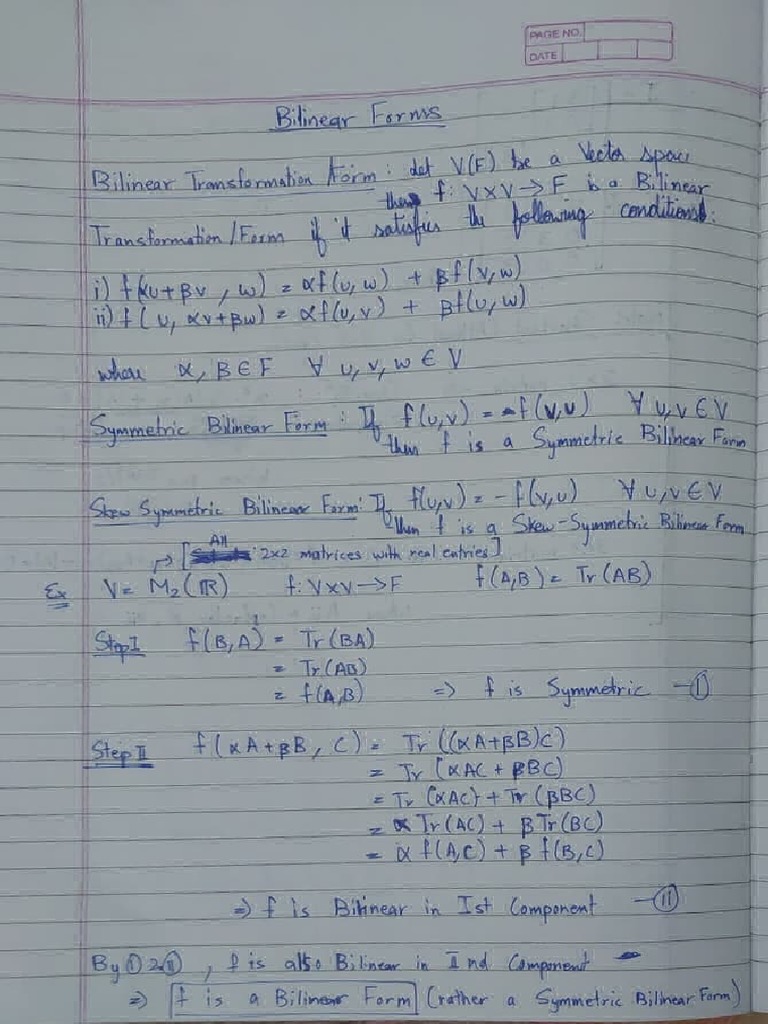 PAGE NO.
DATE
Bilinear Forms
Bilinear Transformation Form : Let V(F) be a Vector space
then f: V×V → F is a Bilinear
Transformation/Form if it satisfies the following conditions:
i) f(αu+βv , w) = αf(u,w) + βf(v,w)
ii) f( u, αv+βw) = αf(u,v) + βf(u,w)
where α, β ∈ F ∀ u, v, w ∈ V
Symmetric Bilinear Form : If f(u,v) = f(v,u) ∀ u,v ∈ V
then f is a Symmetric Bilinear Form
Skew Symmetric Bilinear Form: If f(u,v) = - f(v,u) ∀ u,v ∈ V
then f is a Skew-Symmetric Bilinear Form
→ [ All 2x2 matrices with real entries ]
Ex V = M₂(ℝ) f: V×V → F f(A,B) = Tr(AB)
Step I f(B,A) = Tr(BA)
= Tr(AB)
= f(A,B) => f is Symmetric -Ⓘ
Step II f(αA+βB, C) = Tr((αA+βB)C)
= Tr(αAC + βBC)
= Tr(αAC) + Tr(βBC)
= α Tr(AC) + β Tr(BC)
= α f(A,C) + β f(B,C)
=> f is Bilinear in Ist Component -(II)
By Ⓘ & (II) , f is also Bilinear in II nd Component
=> f is a Bilinear Form (rather a Symmetric Bilinear Form)